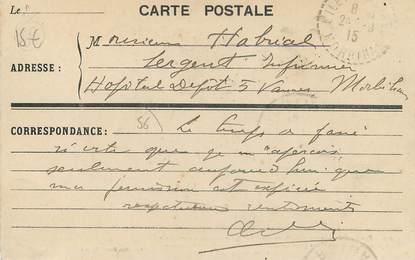 Le
CARTE POSTALE
15€
Monsieur Habrial
ADRESSE : Sergent Infirmier
Hopital Dépôt 5 Vannes Morbihan
8
15
56
CORRESPONDANCE : Le temps a passé
si vite que je m'aperçois
seulement aujourd'hui que
ma permission est expirée
respectueux sentiments